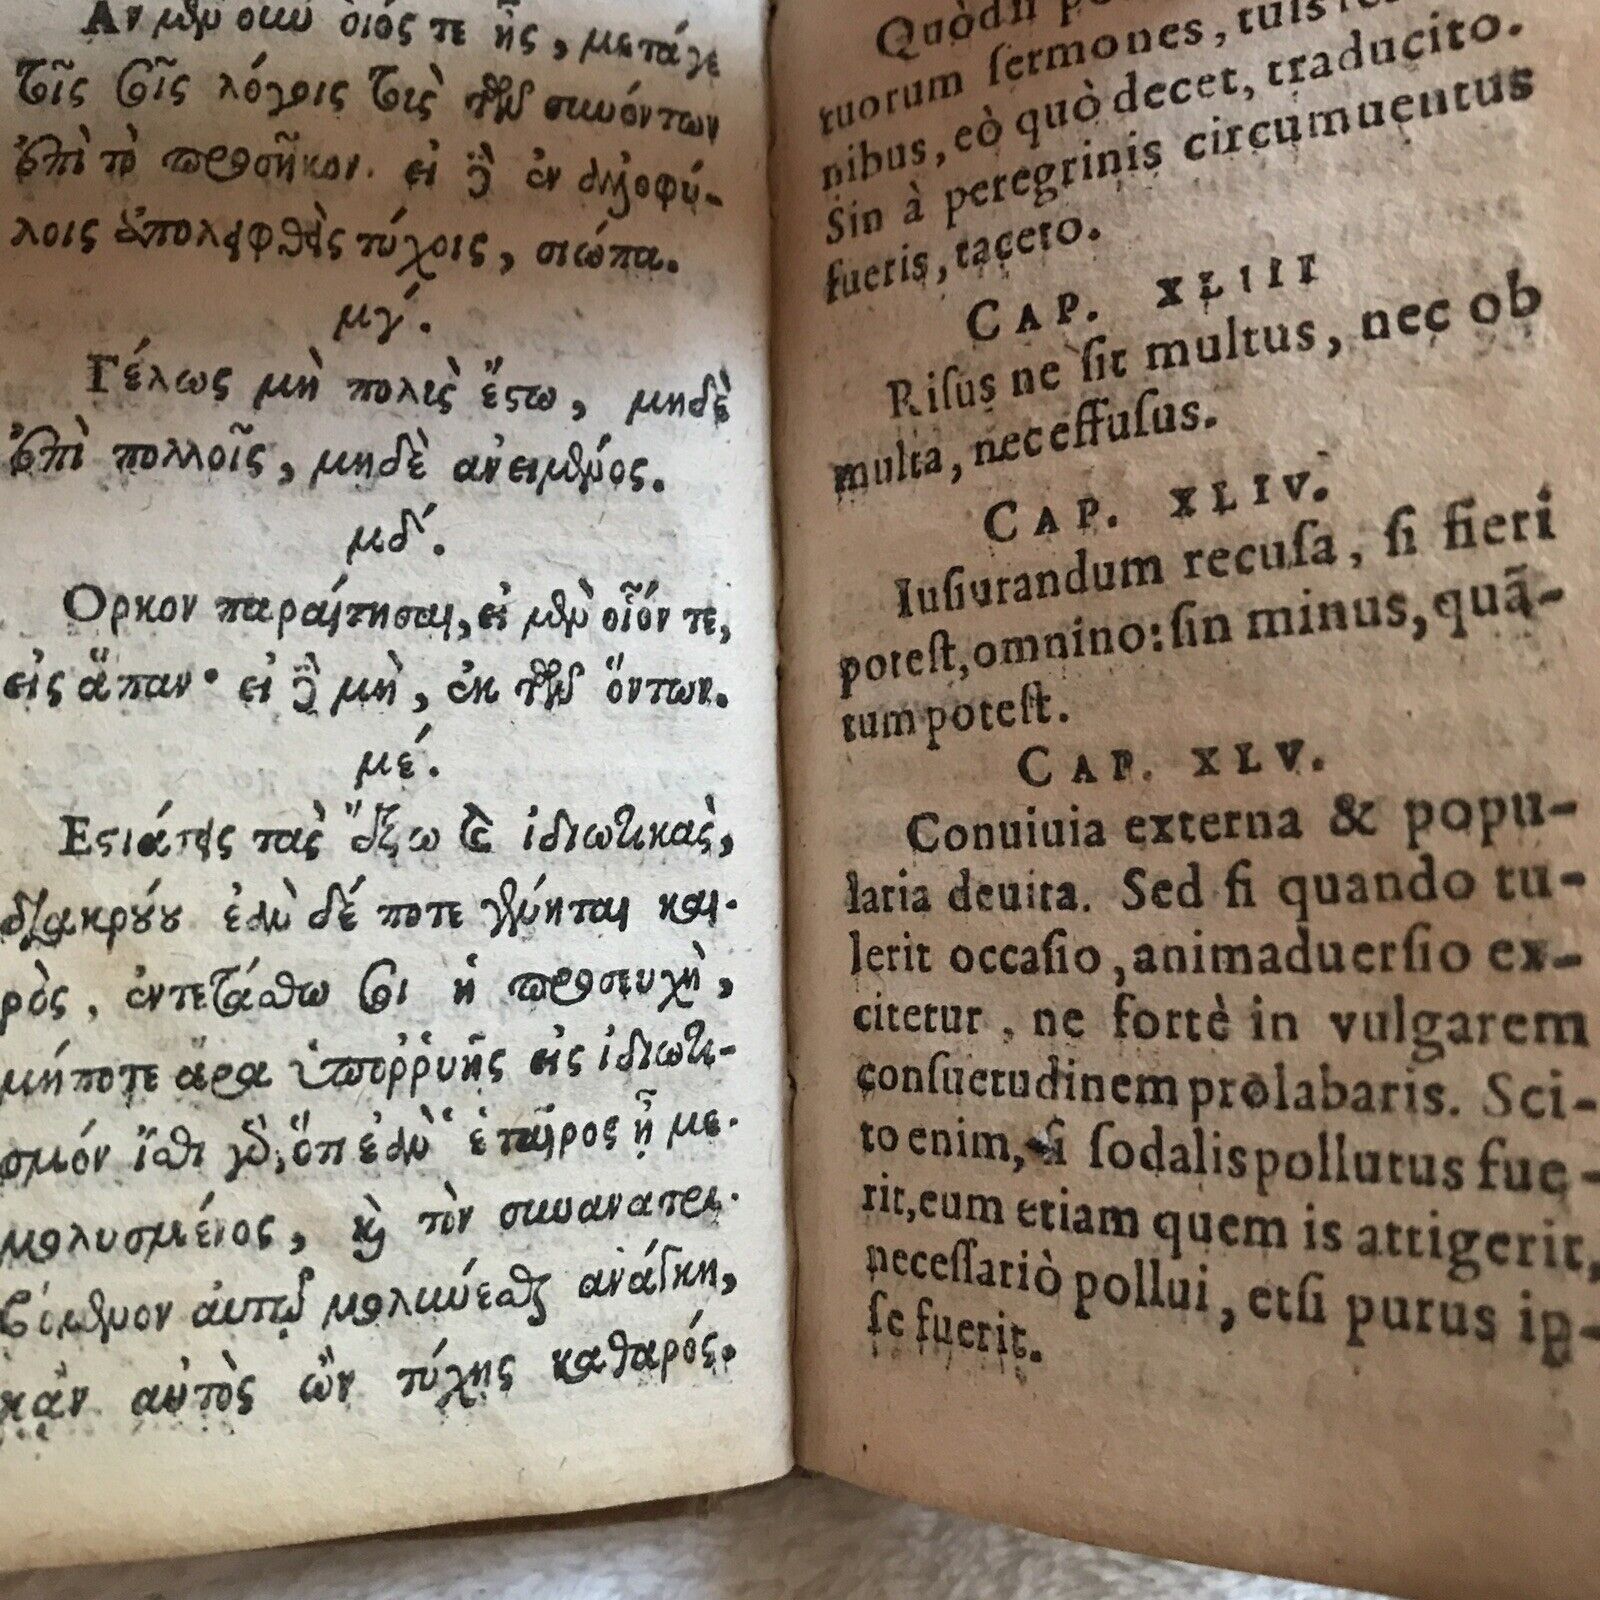 Ἂν μὲν οὖν οἷός τε ᾖς, μετάγε
τοῖς σοῖς λόγοις τοὺς τῶν συνόντων
ἐπὶ τὸ προσῆκον. εἰ δὲ ἐν ἀλλοφύ-
λοις ἀποληφθεὶς τύχοις, σιώπα.
μγ΄.
Γέλως μὴ πολὺς ἔστω, μηδὲ
ἐπὶ πολλοῖς, μηδὲ ἀνειμένος.
μδ΄.
Ορκον παραίτησαι, εἰ μὲν οἷόν τε,
εἰς ἅπαν· εἰ δὲ μὴ, ἐκ τῶν ὄντων.
μέ.
Εστιάσεις τὰς ἔξω καὶ ἰδιωτικὰς,
διακρούου ἐὰν δέ ποτε γένηται και-
ρὸς, ἐντετάσθω σοι ἡ προσευχὴ,
μήποτε ἄρα ὑπορῤυῇς εἰς ἰδιωτι-
σμόν ἴσθι γὰρ, ὅτι ἐὰν ὁ ἑταῖρος ᾖ με-
μολυσμένος, καὶ τὸν συνανατρι-
βόμενον αὐτῷ μολύνεσθαι ἀνάγκη,
κἂν αὐτὸς ὢν τύχῃς καθαρός.
Quòd
tuorum sermones, tuis
nibus, eò quò decet, traducito.
Sin à peregrinis circumuentus
fueris, taceto.
CAP. XLIII
Risus ne sit multus, nec ob
multa, nec effusus.
CAP. XLIV.
Iusiurandum recusa, si fieri
potest, omnino: sin minus, quã-
tum potest.
CAP. XLV.
Conuiuia externa & popu-
laria deuita. Sed si quando tu-
lerit occasio, animaduersio ex-
citetur, ne fortè in vulgarem
consuetudinem prolabaris. Sci-
to enim, si sodalis pollutus fue-
rit, eum etiam quem is attigerit,
necessariò pollui, etsi purus ip-
se fuerit.